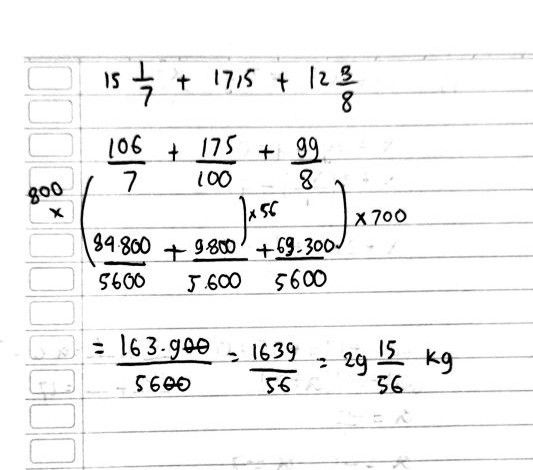 15 1/7 + 17,5 + 12 3/8
106/7 + 175/100 + 99/8
800 × ) ×56 ) ×700
84.800/5600 + 9.800/5.600 + 69.300/5600
= 163.900/5600 = 1639/56 = 29 15/56 kg